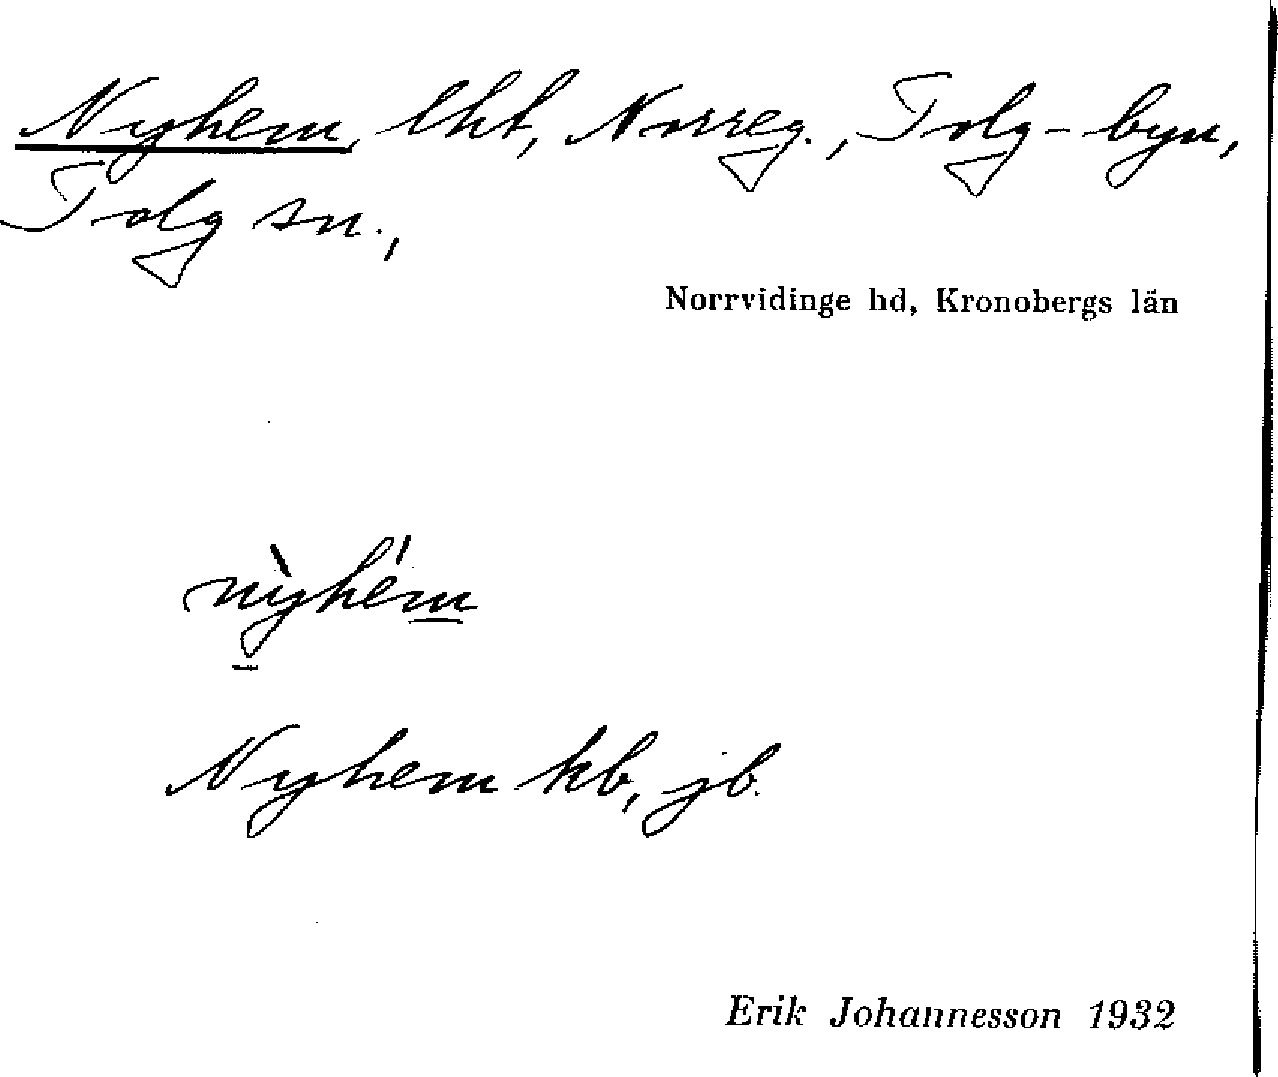 Nyhem, lht, Norreg., Tolg-byn,
Tolg sn.,
Norrvidinge hd, Kronobergs län
nỳhém
Nyhem kb, jb.
Erik Johannesson 1932